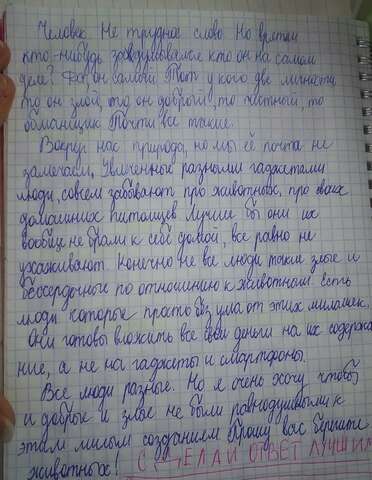 Человек. Не трудное слово. Но врятли
кто-нибудь задумывался кто он на самом
деле? Да, он самый Тот у кого две личности
то он злой, то он добрый, то честный, то
обманщик. Почти все такие.
Вокруг нас природа, но мы её почти не
замечаем. Увлеченные разными гаджетами
люди, совсем забывают про животных, про своих
домашних питомцев Лучше бы они их
вообще не брали к себе домой, все равно не
ухаживают. Конечно не все люди такие злые и
бессердечные по отношению к животным. Есть
люди которые просто без ума от этих милашек.
Они готовы вложить все свои деньги на их содержа
ние, а не на гаджеты и смартфоны.
Все люди разные. Но я очень хочу чтобы
и добрые и злые не были равнодушными к
этим милым созданиям Прошу вас берегите
животных! СДЕЛАЙ ОТВЕТ ЛУЧШИМ